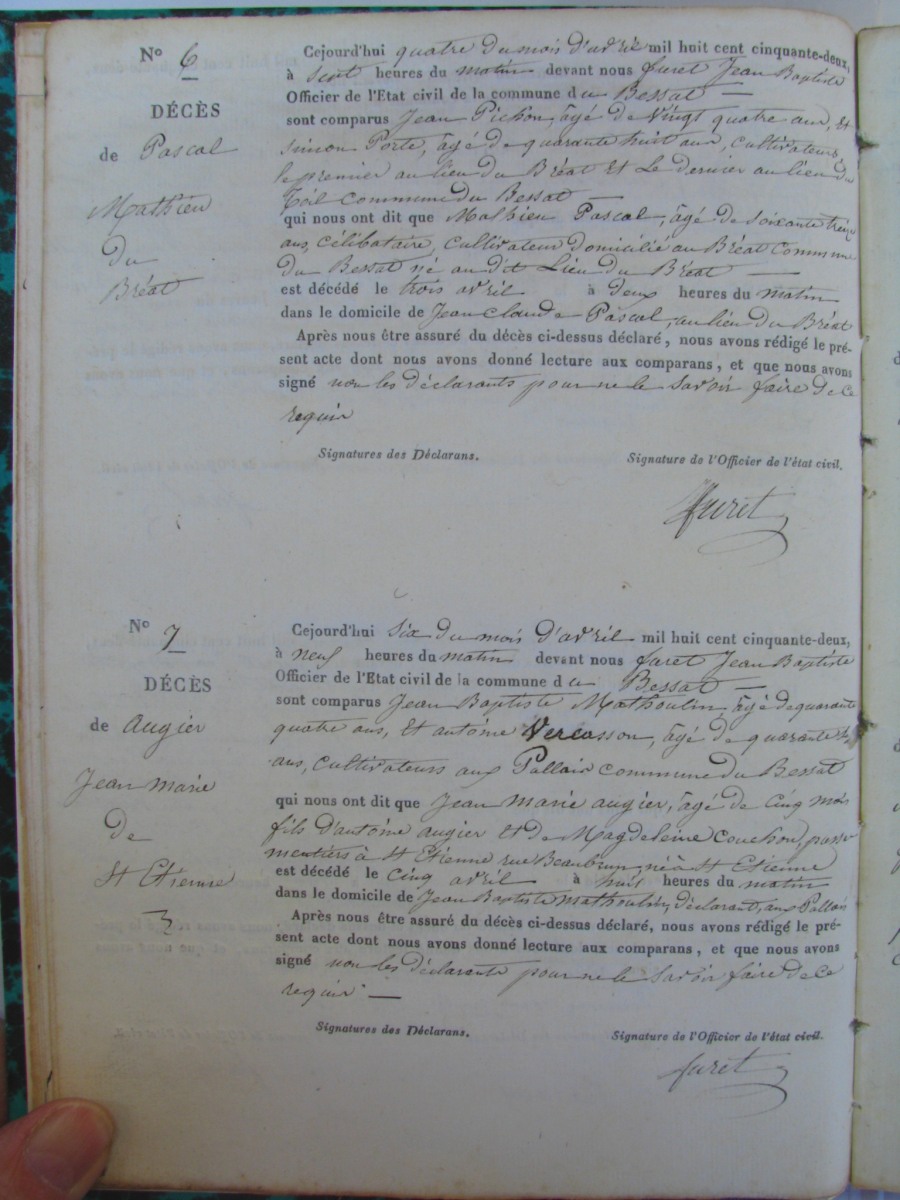 N° 6
DÉCÈS
de Pascal
Mathieu
du
Bréat
Cejourd'hui quatre du mois d'avril mil huit cent cinquante-deux,
à sept heures du matin devant nous furet Jean Baptiste
Officier de l'Etat civil de la commune du Bessat —
sont comparus Jean Pichon, âgé de Vingt quatre ans, Et
simon Porte, âgé de quarante huit ans, cultivateurs,
le premier au lieu du Bréat Et Le dernier au lieu du
Toil commune du Bessat —
qui nous ont dit que Mathieu Pascal, âgé de soixante treize
ans, célibataire, cultivateur domicilié au Bréat Commune
du Bessat né au dit Lieu du Bréat —
est décédé le trois avril à deux heures du matin
dans le domicile de Jean claude Pascal, au lieu du Bréat
Après nous être assuré du décès ci-dessus déclaré, nous avons rédigé le pré-
sent acte dont nous avons donné lecture aux comparans, et que nous avons
signé non les déclarants pour ne le savoir faire de ce
requis
Signatures des Déclarans. Signature de l'Officier de l'état civil.
furet
N° 7
DÉCÈS
de augier
Jean Marie
De
St Etienne
3
Cejourd'hui six du mois d'avril mil huit cent cinquante-deux,
à neuf heures du matin devant nous furet Jean Baptiste
Officier de l'Etat civil de la commune du Bessat —
sont comparus Jean Baptiste Mathoulin, âgé de quarante
quatre ans, Et antoine Vercasson, âgé de quarante
ans, cultivateurs aux Pallais commune du Bessat
qui nous ont dit que Jean Marie augier, âgé de Cinq mois
fils d'antoine augier Et de Magdeleine Couchon, passe
mentiers à St Etienne rue Beaubrun né à St Etienne
est décédé le Cinq avril à huit heures du matin
dans le domicile de Jean Baptiste Mathoulin, déclarant, aux Pallais
Après nous être assuré du décès ci-dessus déclaré, nous avons rédigé le pré-
sent acte dont nous avons donné lecture aux comparans, et que nous avons
signé non les déclarants pour ne le savoir faire de ce
requis. —
Signatures des Déclarans. Signature de l'Officier de l'état civil.
furet